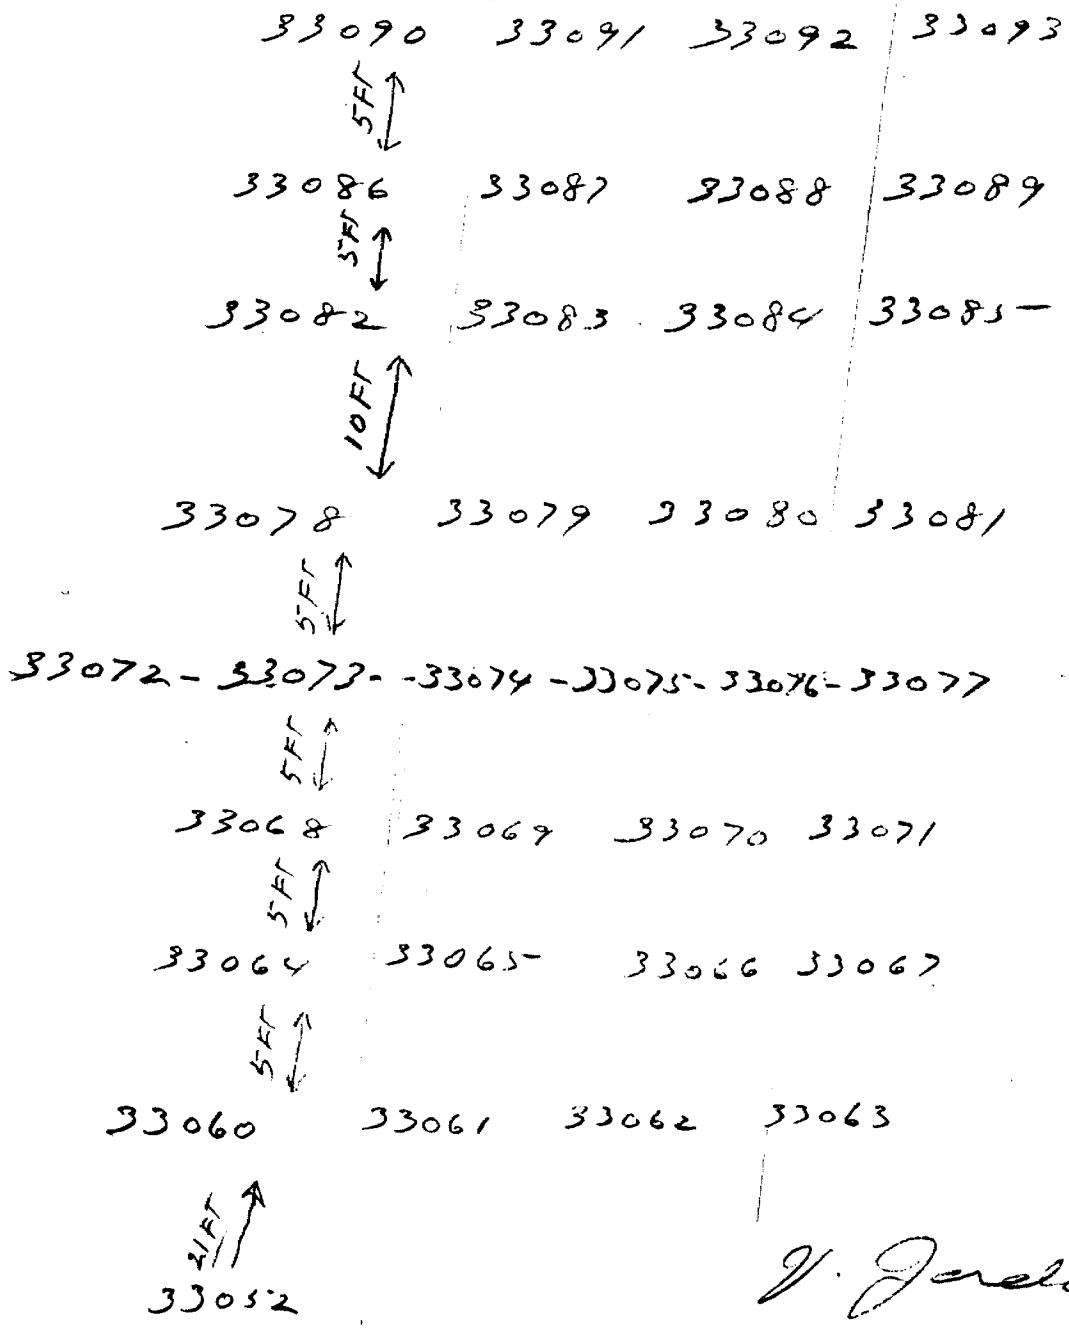 33090 33091 33092 33093
5FT
33086 33087 33088 33089
5FT
33082 33083 33084 33085
10FT
33078 33079 33080 33081
5FT
33072 - 33073 - - 33074 - 33075 - 33076 - 33077
5FT
33068 33069 33070 33071
5FT
33064 33065 33066 33067
5FT
33060 33061 33062 33063
21FT
33052